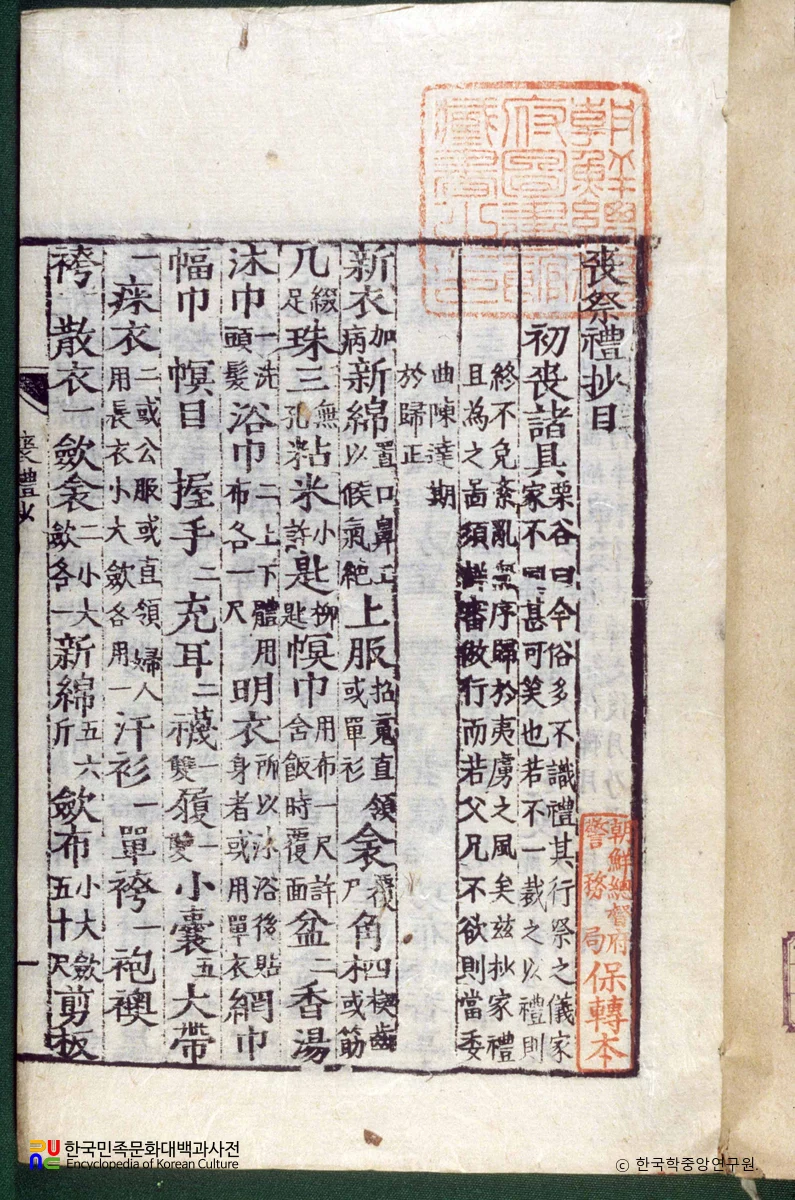 朝鮮總督府圖書館藏書之印
喪祭禮抄目
朝鮮總督府
警務局
保轉本
初喪諸具 栗谷曰今俗多不識禮其行祭之儀家家不同甚可笑也若不一裁之以禮則
終不免紊亂無序歸於夷虜之風矣玆抄家禮且為之啚須詳審倣行而若父兄不欲則當委
曲陳達期於歸正
新衣加病新綿置口鼻上以候氣絶上服招䰟直領或單衫衾覆尸角柶四楔齒或筯
几綴足珠三無孔粘米小許匙柳匙幎巾用布一尺許含飯時覆面盆二香湯
沐巾一洗頭髮浴巾二上下體用布各一尺明衣所以沐浴後貼身者或用單衣網巾
幅巾 幎目 握手二充耳二襪一雙履一雙小囊五大帶
一褖衣二或公服或直領婦人用長衣小大斂各用一汗衫一單袴一袍襖
袴一散衣一斂衾二小大斂各一新綿五六斤斂布小大斂五十尺剪板
喪禮抄
한국민족문화대백과사전
Encyclopedia of Korean Culture
© 한국학중앙연구원